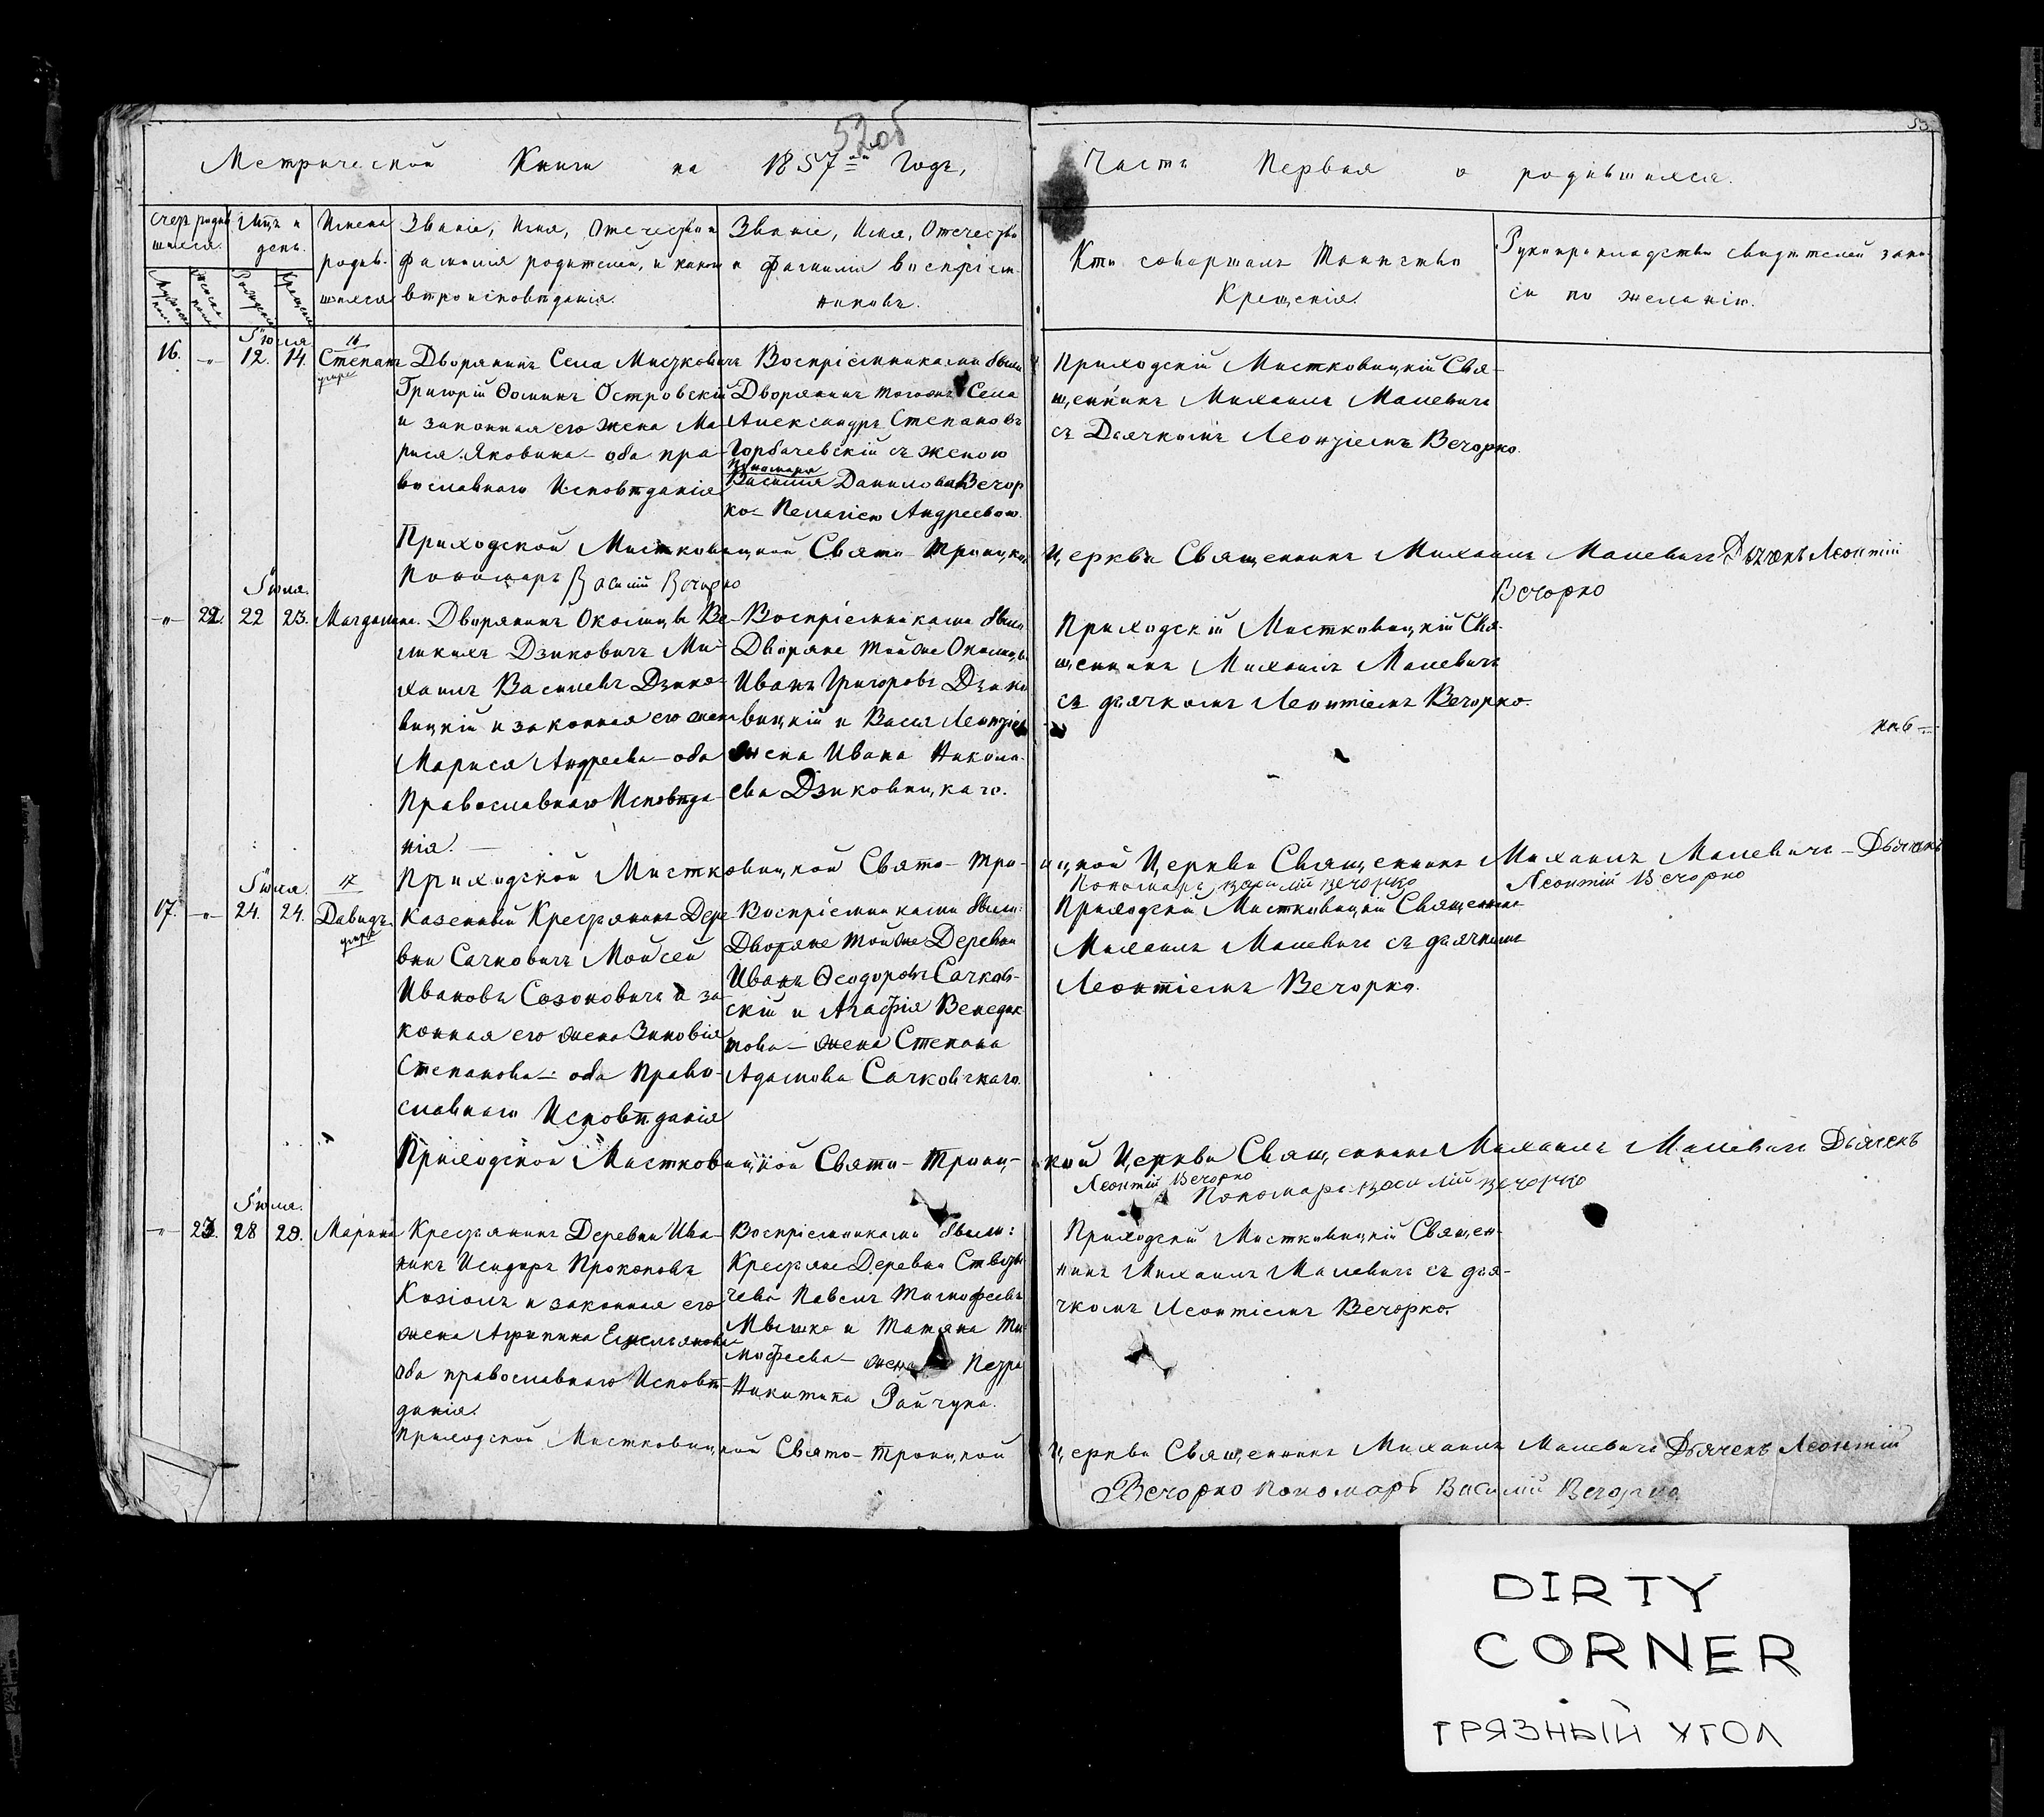 52об
53
Метрической Книги на 1857ой Годъ,
Часть Первая о родившихся.
Счетъ родив
шихся.
Мцъ и
день.
Имена
родив-
шихся
Званіе, Имя, Отчество и
Фамилія родителей, и какого
вѣроисповѣданія.
Званіе, Имя, Отечество
и фамилія воспріем-
никовъ.
Кто совершалъ Таинство
Крещенія.
Рукоприкладство свидѣтелей запи-
си по желанію.
Іюля
16. -"- 12. 14. Степанъ
16
умре
Дворянинъ Села Мистковичъ
Григорій Ѳоминъ Островскій
и законная его жена Ма-
рися Яковина - оба пра-
вославнаго Исповѣданія
Воспріемниками были
Дворянинъ тогожъ Села
Александръ Степановъ
Горбачевскій съ женою
Пономаря
Василія Данилова Вечор
ко - Пелагіею Андреевою.
Приходскій Мистковицкій Свя-
щенникъ Михаилъ Малевичъ
съ Дьячкомъ Леонтіемъ Вечорко.
Приходской Мистковицкой Свято - Троицкой Церкви Священникъ Михаилъ Малевичъ Дьячекъ Леонтій
Вечорко
Пономарь Василій Вечорко
Іюля.
-"- 22. 22 23. Магдалина.
Дворянинъ Околицы Ве-
ликихъ Дзиковичъ Ми-
хаилъ Василевъ Дзико-
вицкій и законная его жена
Марися Андреева - оба
Православнаго Исповѣда-
нія. -
Воспріемниками были
Дворяне тойже Околицы
Иванъ Григоровъ Дзико
вицкій и Васса Леонтіева
жена Ивана Никола-
ева Дзиковицкаго.
Приходскій Мистковицкій Свя-
щенникъ Михаилъ Малевичъ
съ дьячкомъ Леонтіемъ Вечорко.
Приходской Мистковицкой Свято - Трои-ицкой Церкви Священникъ Михаилъ Малевичъ - Дьячекъ
Пономарь Василій Вечорко Леонтій Вечорко
Іюля.
17. -"- 24. 24. Давидъ.
17
умре
Казенный Крестьянинъ Дере-
вни Сачковичъ Мойсей
Ивановъ Созоновичъ и за-
конная его жена Зиновія
Степанова - оба Право-
славнаго Исповѣданія
Воспріемниками были:
Дворяне тойже Деревни
Иванъ Ѳеодоровъ Сачков-
скій и Агафія Венедик-
това - жена Степана
Адамова Сачковскаго.
Приходскій Мистковицкій Священникъ
Михаилъ Малевичъ съ дьячкомъ
Леонтіемъ Вечорко.
Приходской Мистковицкой Свято - Троиц-кой Церкви Священникъ Михаилъ Малевичъ Дьячекъ
Леонтій Вечорко
Пономарь Василій Вечорко
Іюля.
-"- 23. 28 29. Марина
Крестьянинъ Деревни Ива-
никъ Исидоръ Прокоповъ
Козіолъ и законная его
жена Агрипина Емельянова
оба православнаго Исповѣ-
данія.
Воспріемниками были:
Крестьяне Деревни
чева Павелъ Тимофеевъ
Мышко и Татяна Ти-
мофеева - жена Петра
Никитина Райчука.
Приходскій Мистковицкій Священ-
никъ Михаилъ Малевичъ съ дья-
чкомъ Леонтіемъ Вечорко.
Приходской Мистковицкой Свято - Троицкой Церкви Священникъ Михаилъ Малевичъ Дьячекъ Леонтій
Вечорко Пономарь Василій Вечорко
DIRTY
CORNER
ГРЯЗНЫЙ УГОЛ